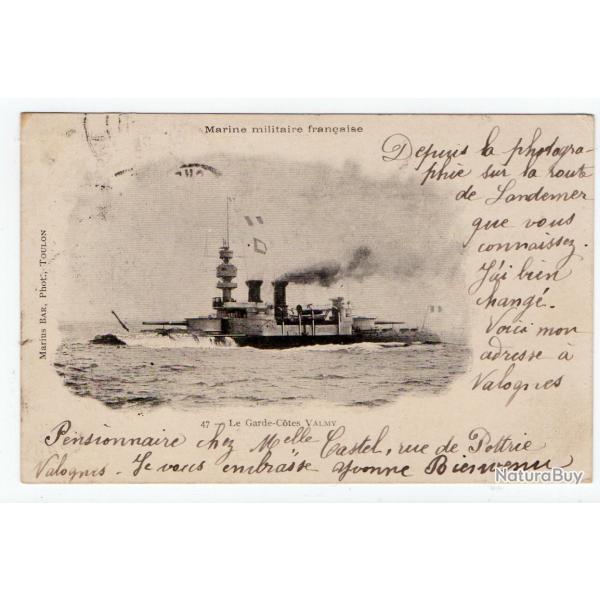 Marine militaire française
Depuis la photogra-
phie sur la route
de Landemer
que vous
connaissez.
J'ai bien
changé.
Voici mon
adresse à
Valognes
Marius BAR, Phot., TOULON
47 - Le Garde-Côtes VALMY
Pensionnaire chez Melle Castel, rue de Pottrie
Valognes. Je vous embrasse Yvonne Bienvenu
NaturaBuy